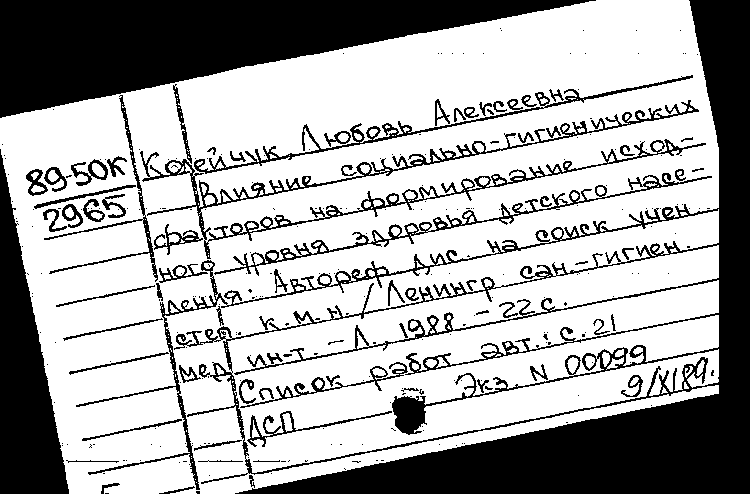 89-50К
2965
Колейчук, Любовь Алексеевна
Влияние социально-гигиенических
факторов на формирование исход-
ного уровня здоровья детского насе-
ления: Автореф. дис. на соиск учен.
степ. к.м.н. / Ленингр сан.-гигиен.
мед. ин-т. - Л., 1988. - 22 с.
Список работ авт.: с. 21
ДСП Экз. N 00099
9/XI89.